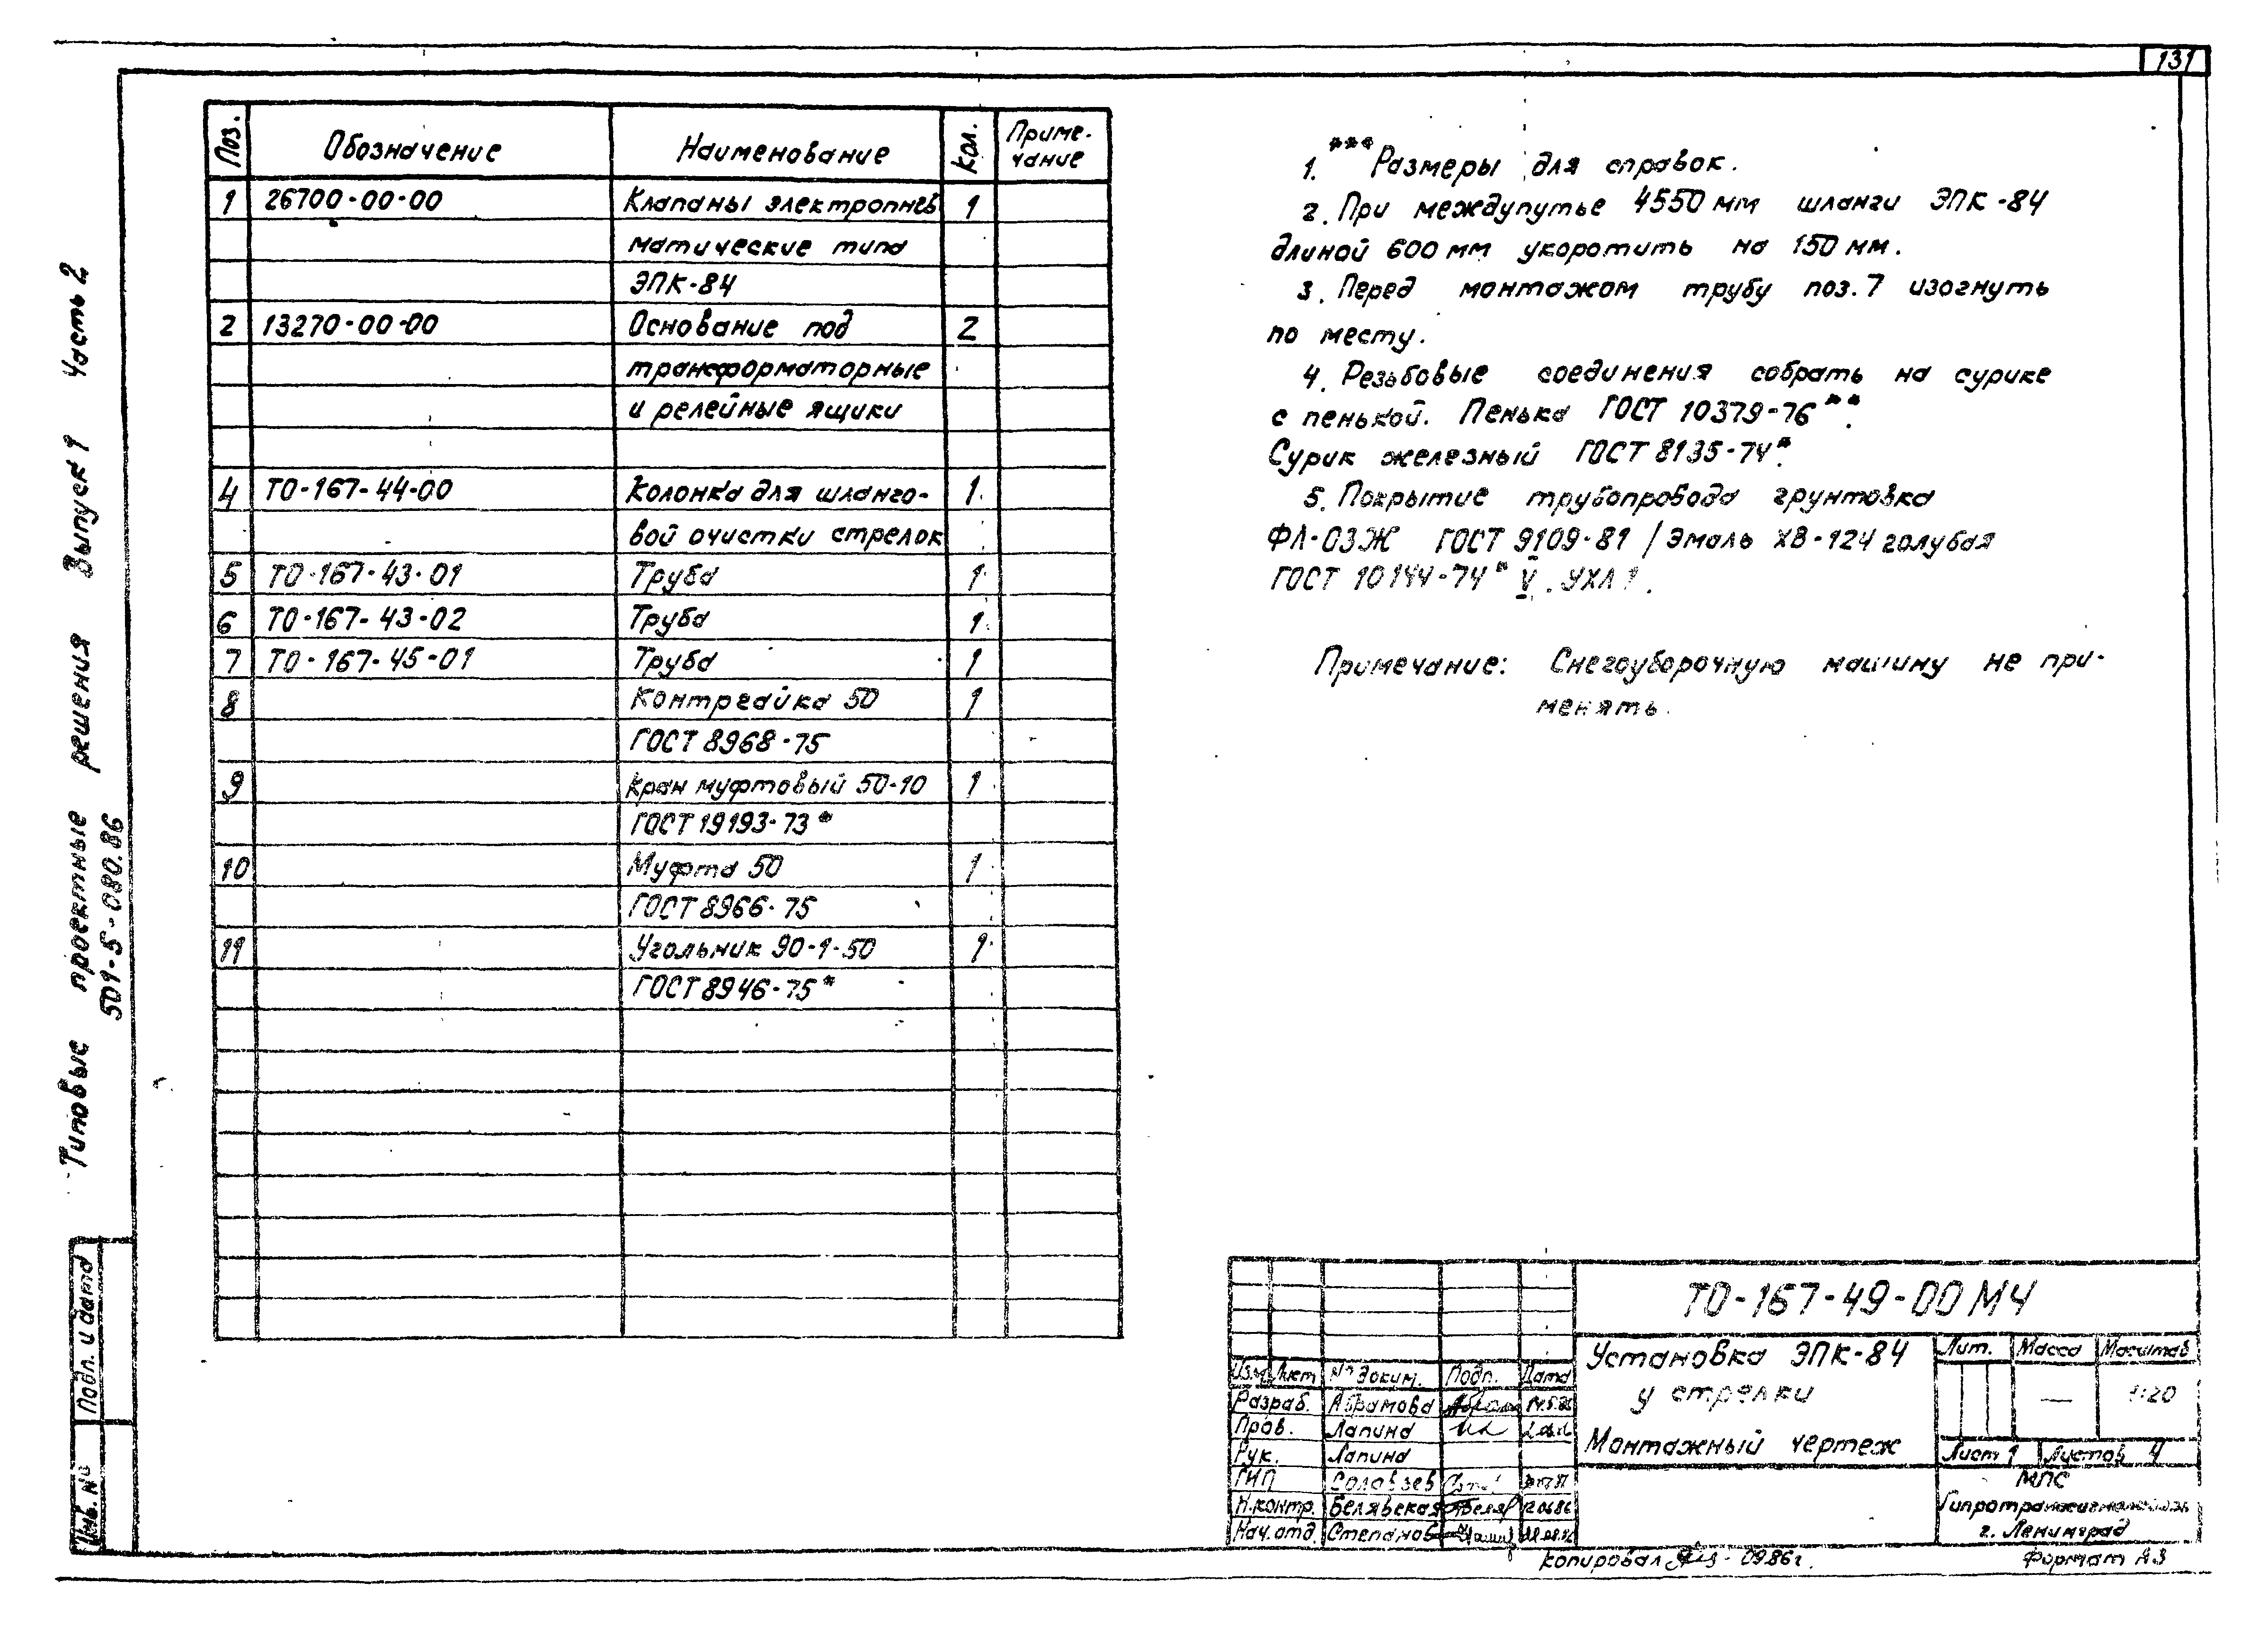 131
Типовые проектные решения Выпуск 1 Часть 2
501-5-080.86
Поз. Обозначение Наименование Кол. Приме-
чание
1 26700-00-00 Клапаны электропнев 1
матические типа
ЭПК-84
2 13270-00-00 Основание под 2
трансформаторные
и релейные ящики
4 ТО-167-44-00 Колонка для шланго- 1
вой очистки стрелок
5 ТО-167-43-01 Труба 1
6 ТО-167-43-02 Труба 1
7 ТО-167-45-01 Труба 1
8 Контргайка 50 1
ГОСТ 8968-75
9 Кран муфтовый 50-10 1
ГОСТ 19193-73*
10 Муфта 50 1
ГОСТ 8966-75
11 Угольник 90-1-50 1
ГОСТ 8946-75*
1.***Размеры для справок.
2. При междупутье 4550 мм шланги ЭПК-84
длиной 600 мм укоротить на 150 мм.
3. Перед монтажом трубу поз. 7 изогнуть
по месту.
4. Резьбовые соединения собрать на сурике
с пенькой. Пенька ГОСТ 10379-76**.
Сурик железный ГОСТ 8135-74*.
5. Покрытие трубопровода грунтовка
ФЛ-03Ж ГОСТ 9109-81 / Эмаль ХВ-124 голубая
ГОСТ 10144-74* V. УХЛ1.
Примечание: Снегоуборочную машину не при-
менять.
ТО-167-49-00 МЧ
Установка ЭПК-84
у стрелки
Монтажный чертеж
Лит. Масса Масштаб
— 1:20
Лист 1 Листов 4
МПС
Гипротранссигналсвязь
г. Ленинград
Изм. Лист № докум. Подп. Дата
Разраб. Абрамова 14.5.86
Пров. Лапина
Рук. Лапина
ГИП Соловьев
Н.контр. Белявская Беляв 12.06.86
Нач. отд. Степанов
Подп. и дата
Инв. №
Копировал 09.86г.
Формат А3